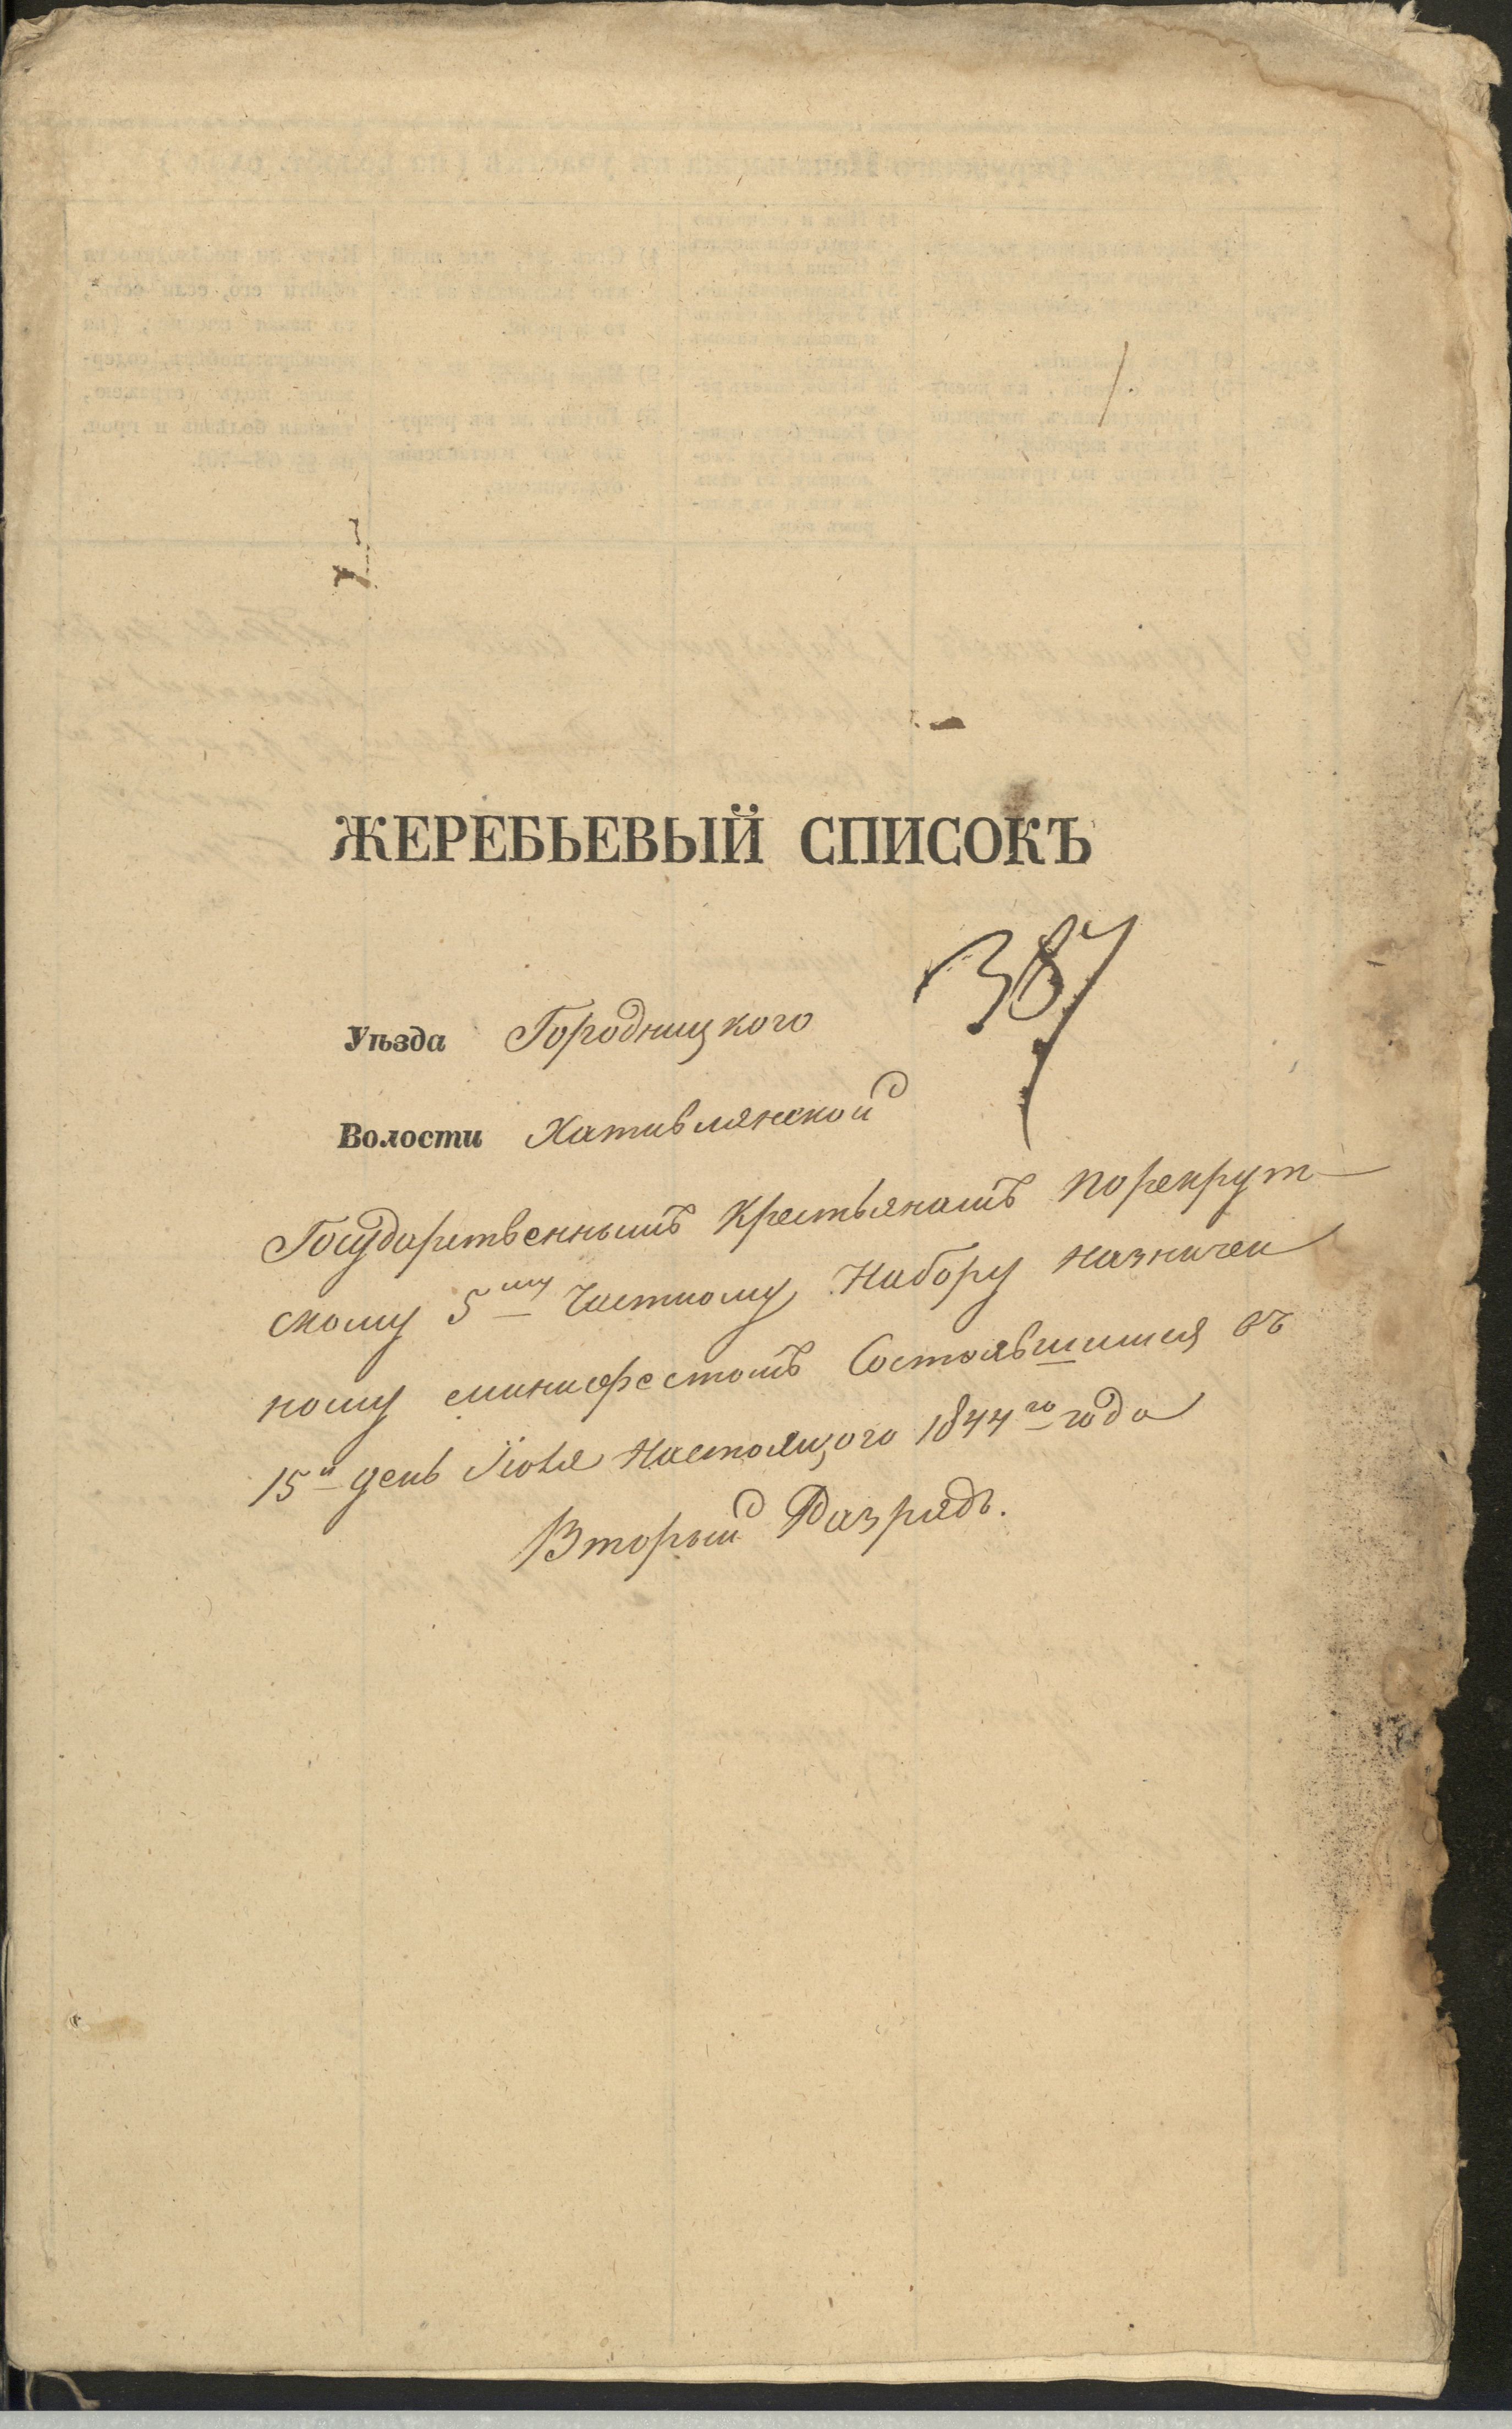 1.
ЖЕРЕБЬЕВЫЙ СПИСОКЪ
387
Уѣзда Городницкого
Волости Хативлянской
Государственнымъ Крестьянамъ порекрут
скому 5му Частному Набору назначен
ному манифестомъ Состоявшимся въ
15й день Іюля Настоящого 1844го года
Вторый Разрядъ.